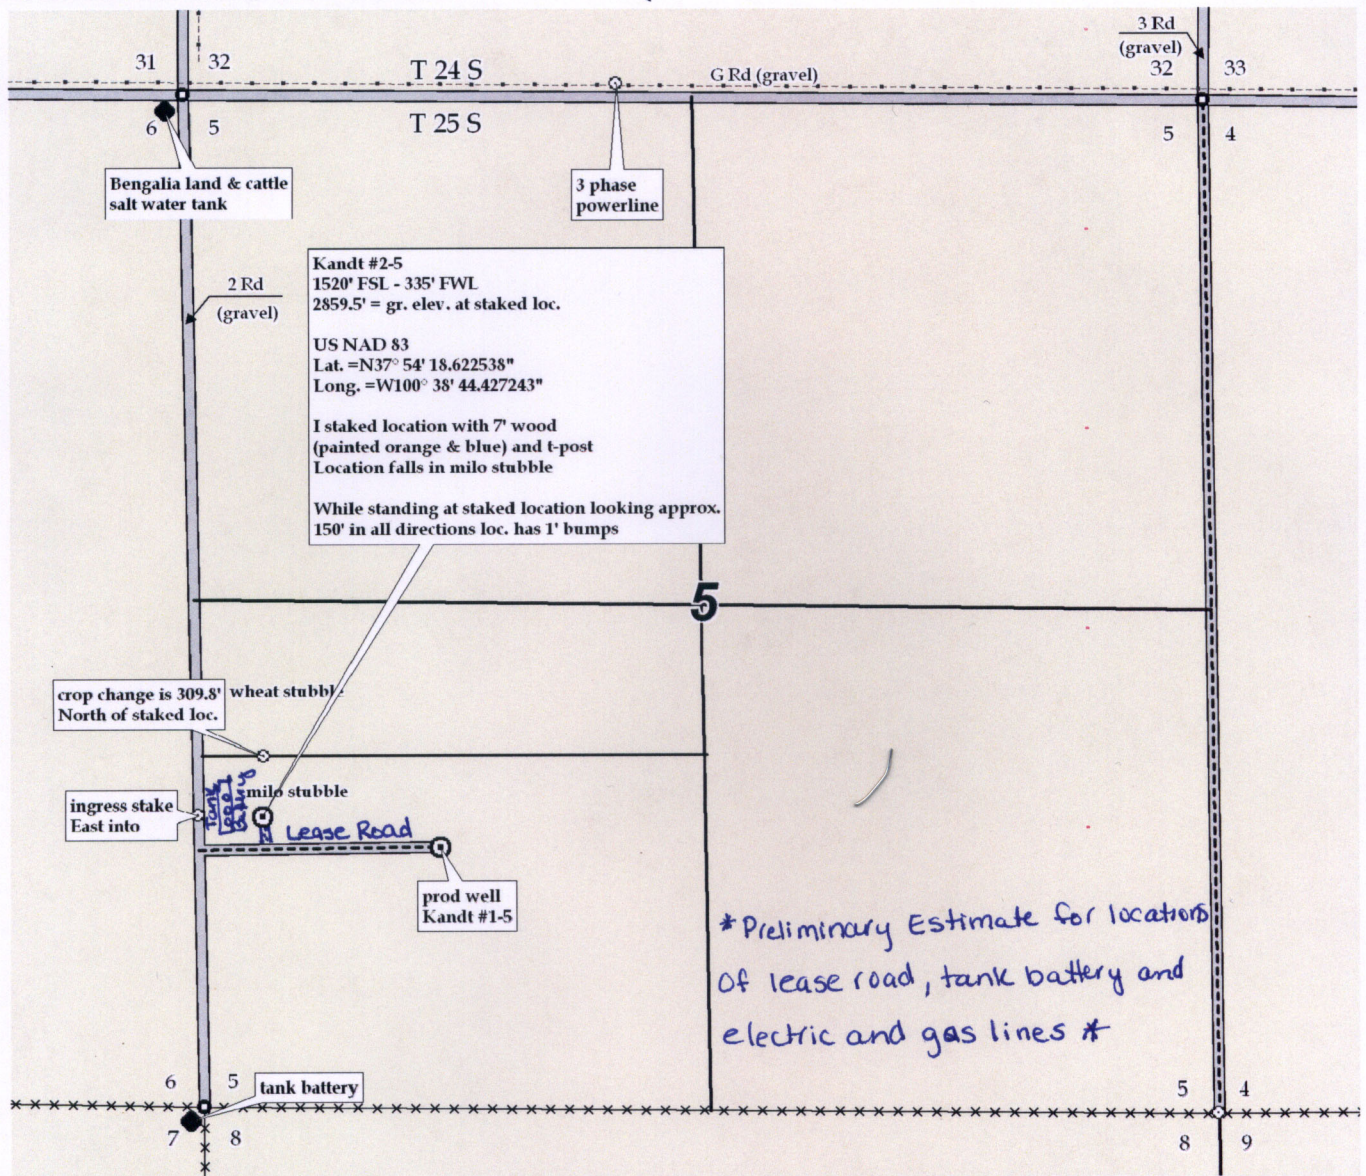 3 Rd
(gravel)
31 32
T 24 S
G Rd (gravel)
32 33
6 5
T 25 S
5 4
Bengalia land & cattle
salt water tank
3 phase
powerline
Kandt #2-5
1520' FSL - 335' FWL
2859.5' = gr. elev. at staked loc.
2 Rd
(gravel)
US NAD 83
Lat. =N37° 54' 18.622538"
Long. =W100° 38' 44.427243"
I staked location with 7' wood
(painted orange & blue) and t-post
Location falls in milo stubble
While standing at staked location looking approx.
150' in all directions loc. has 1' bumps
5
crop change is 309.8'
North of staked loc.
wheat stubble
Tank
Battery
milo stubble
ingress stake
East into
Lease Road
prod well
Kandt #1-5
*Preliminary Estimate for locations
of lease road, tank battery and
electric and gas lines *
6 5
tank battery
5 4
7 8
8 9